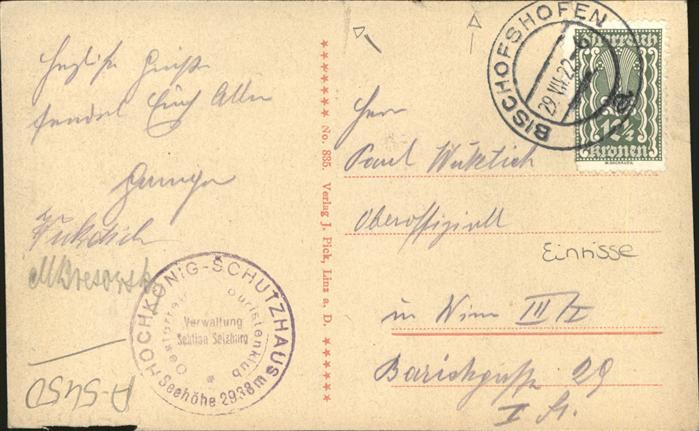 Herzliche Grüße
sendet Euch Allen
Wukitich
A-5450
HOCHKÖNIG-SCHUTZHAUS
Oesterr. Touristenklub
Verwaltung
Sektion Salzburg
Seehöhe 2938 m
No. 835. Verlag J. Pick, Linz a. D.
BISCHOFSHOFEN
29.VII.22
Österreich
12½
Kronen
Herrn
Paul Wukitich
Oberoffizial
Einrisse
in Wien III/I
Barichgasse 29
I. St.